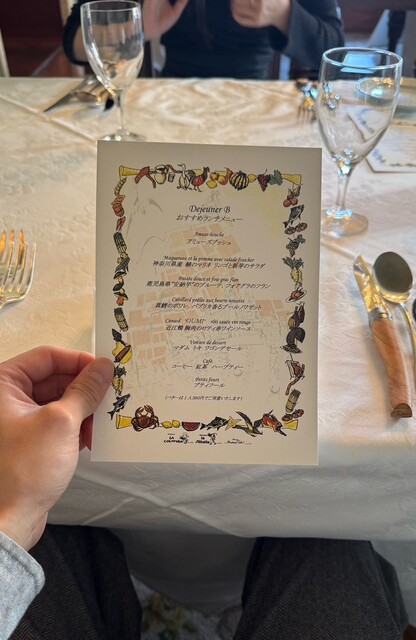 Dejeuner B
おすすめランチメニュー
Amuse-bouche
アミューズブッシュ
Maquereau et la pomme avec salade fraicher
神奈川県産 鯖のマリネ リンゴと新芽のサラダ
Patate douce et foie gras flan
鹿児島県"安納芋"のブルーテ、フォアグラのフラン
Cabillaud poêlée aux beurre noisette
真鱈のポワレ、パプリカ香るブールノワゼット
Canard "OUMI" rôti sauce vin rouge
近江鴨 胸肉のロティ赤ワインソース
Voiture de dessert
マダム トキ ワゴンデセール
Café
コーヒー 紅茶 ハーブティー
Petits fours
プティフール